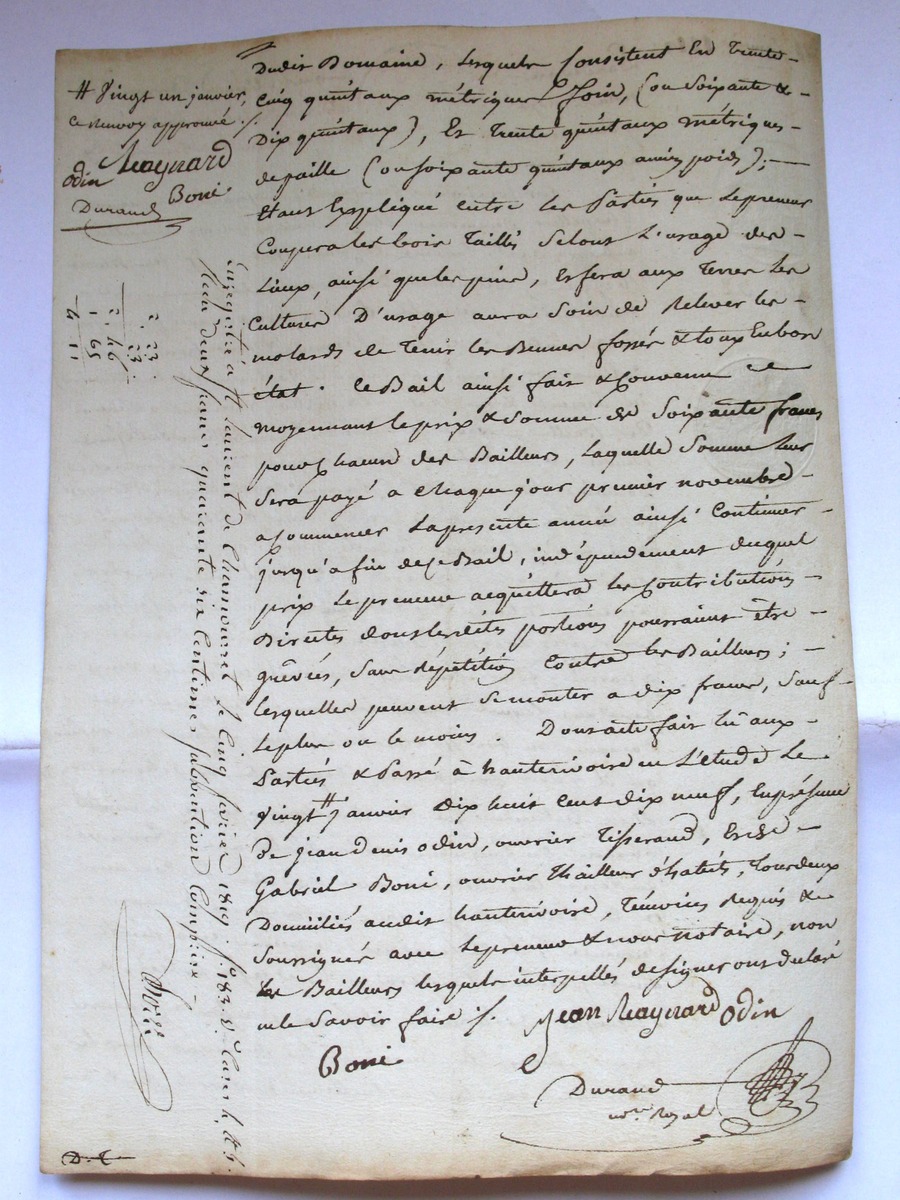 # Vingt un janvier,
ce renvoy approuvé ./.
Raynard
odin
Boni
Durand
2, 23
23
2, 46
1 65
4 11
Enregistré à St Laurent de Chamousset le cinq février 1819, fo 183. Vo Cases 4, & 5.
Reçu deux francs quarante six centimes subvention comprise -
D. C.
Dudit Domaine, lesquels consistent En Trente-
Cinq quintaux métriques foin, (ou Soixante &-
Dix quintaux), Et Trente quintaux métriques-
de paille (ou soixante quintaux ancien poids);-
Etant Expliqué entre les Parties que Lepreneur
Coupera les bois Taillis Selont L'usage des-
Lieux, ainsi que les pins, Et fera aux Terres Les
Cultures D'usage aura Soin de Relever les-
molards de Tenir les fossés & Enbon
état. Ce Bail ainsi fait & Convenu
moyennant le prix & Somme de Soixante francs
pour Chacun des Bailleurs, Laquelle Somme Leur
Sera payé a Chaque jour premier novembre-
a Commencer Laprésente année ainsi Continuer-
jusqu'a fin de Ce Bail, indépendement duquel
prix Lepreneur acquittera les Contributions-
Directes dont lesdites portions pourraient être-
grévées, Sans répétition Contre les Bailleurs;-
lesquelles peuvent Se monter a dix francs, Sauf-
Leplus ou le moins. Dont acte fait lû aux-
Parties & Passé à hauterivoire en L'étude Le
Vingt # janvier Dix huit Cent dix neuf, Enprésence
De jean Denis odin, ouvrier Tisserand, Et de-
Gabriel Boni, ouvrier Thailleur d'habits, Tous deux
Domiciliés audit hauterivoire, Témoins Requis &
Soussignés avec Lepreneur & nous notaire, non
les Bailleurs lesquels interpellés designer ont déclaré
nele Savoir faire ./.
Jean Raynard
odin
Boni
Durand
nore Royal